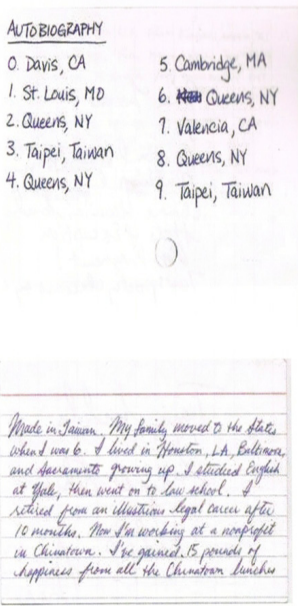 AUTOBIOGRAPHY
0. Davis, CA
1. St. Louis, MO
2. Queens, NY
3. Taipei, Taiwan
4. Queens, NY
5. Cambridge, MA
6. Queens, NY
7. Valencia, CA
8. Queens, NY
9. Taipei, Taiwan
Made in Taiwan. My family moved to the States
when I was 6. I lived in Houston, LA, Baltimore,
and Sacramento growing up. I studied English
at Yale, then went on to law school. I
retired from an illustrious legal career after
10 months. Now I'm working at a nonprofit
in Chinatown. I've gained 15 pounds of
happiness from all the Chinatown lunches